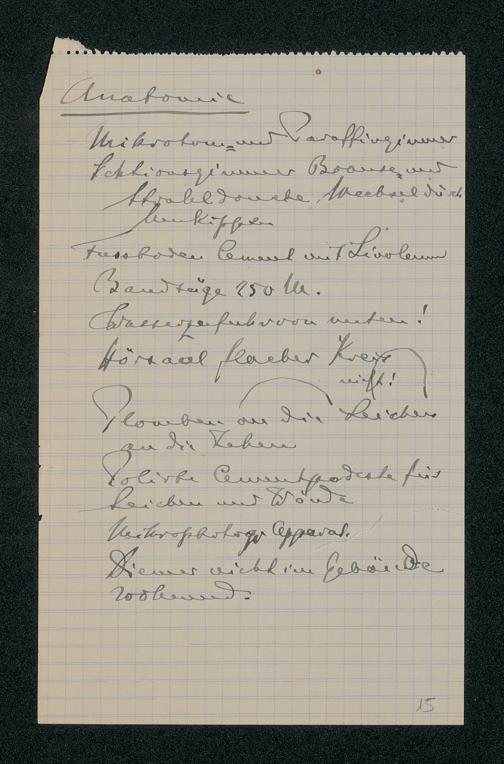 Anatomie
Mikrotom= und Paraffinzimmer
Sektionszimmer Brause= und
Strahldousche, Wechsel durch
Umkippen
Fussboden Cement mit Linoleum
Bandsäge 250 M.
Wasserzufuhr von unten!
Hörsaal flacher Kreis
nicht!
Plomben an die Leichen
an die Zehen
Polirte Cementpodeste für
Leichen und Wände
Mikrophotogr Apparat.
Diener nicht im Gebäude
wohnend.
15